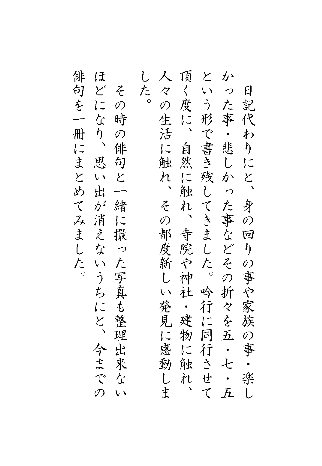 日記代わりにと、身の回りの事や家族の事・楽し
かった事・悲しかった事などその折々を五・七・五
という形で書き残してきました。吟行に同行させて
頂く度に、自然に触れ、寺院や神社・建物に触れ、
人々の生活に触れ、その都度新しい発見に感動しま
した。
その時の俳句と一緒に撮った写真も整理出来ない
ほどになり、思い出が消えないうちにと、今までの
俳句を一冊にまとめてみました。